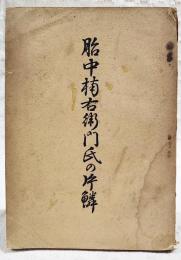 胎中楠右衛門氏の片鱗